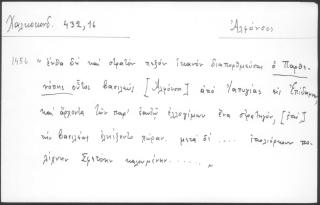 Χαλκοκονδ. 432,16
Ἀλφόνσος
1456 "ἔνθα δὴ καὶ στρατὸν πεζὸν ἱκανὸν διαπορθμεύσας ὁ Παρθε-
νόπης οὗτος βασιλεὺς [Ἀλφόνσος] ἀπὸ Ἰαπυγίας ἐς Ἐπίδαμνον,
καὶ ἄρχοντα τῶν παρ' ἑαυτῷ ἐλλογίμων ἕνα στρατηγὸν, [ἐπὶ]
τὴν βασιλέως ἐληΐζετο χώραν. μετὰ δὲ .... ἐπολιόρκουν πο-
λίχνην Σφετίαν καλουμένην. ....."